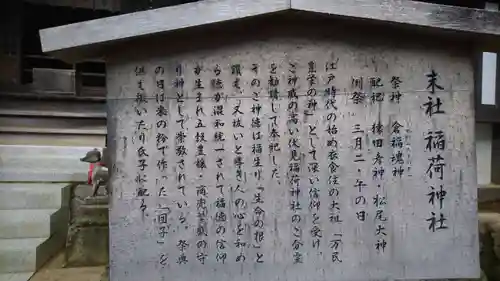 末社 稲荷神社
祭神 倉稲魂神
配祀 猿田彦神・松尾大神
例祭 三月二の午の日
江戸時代の始め衣食住の大祖「万民
豊楽の神」として深い信仰を受け、
ご神威の高い伏見稲荷神社のご分霊
を勧請して奉祀した。
そのご神徳は稲生り「生命の根」と
頭え、又祓いと導き人の心を和め
る徳が混和統一されて福徳の信仰
が生まれ五穀豊穣・商売繁盛の守
り神として崇敬されている。祭典
の日は米の粉で作った「団子」を
供え後いたり衣子状配る。